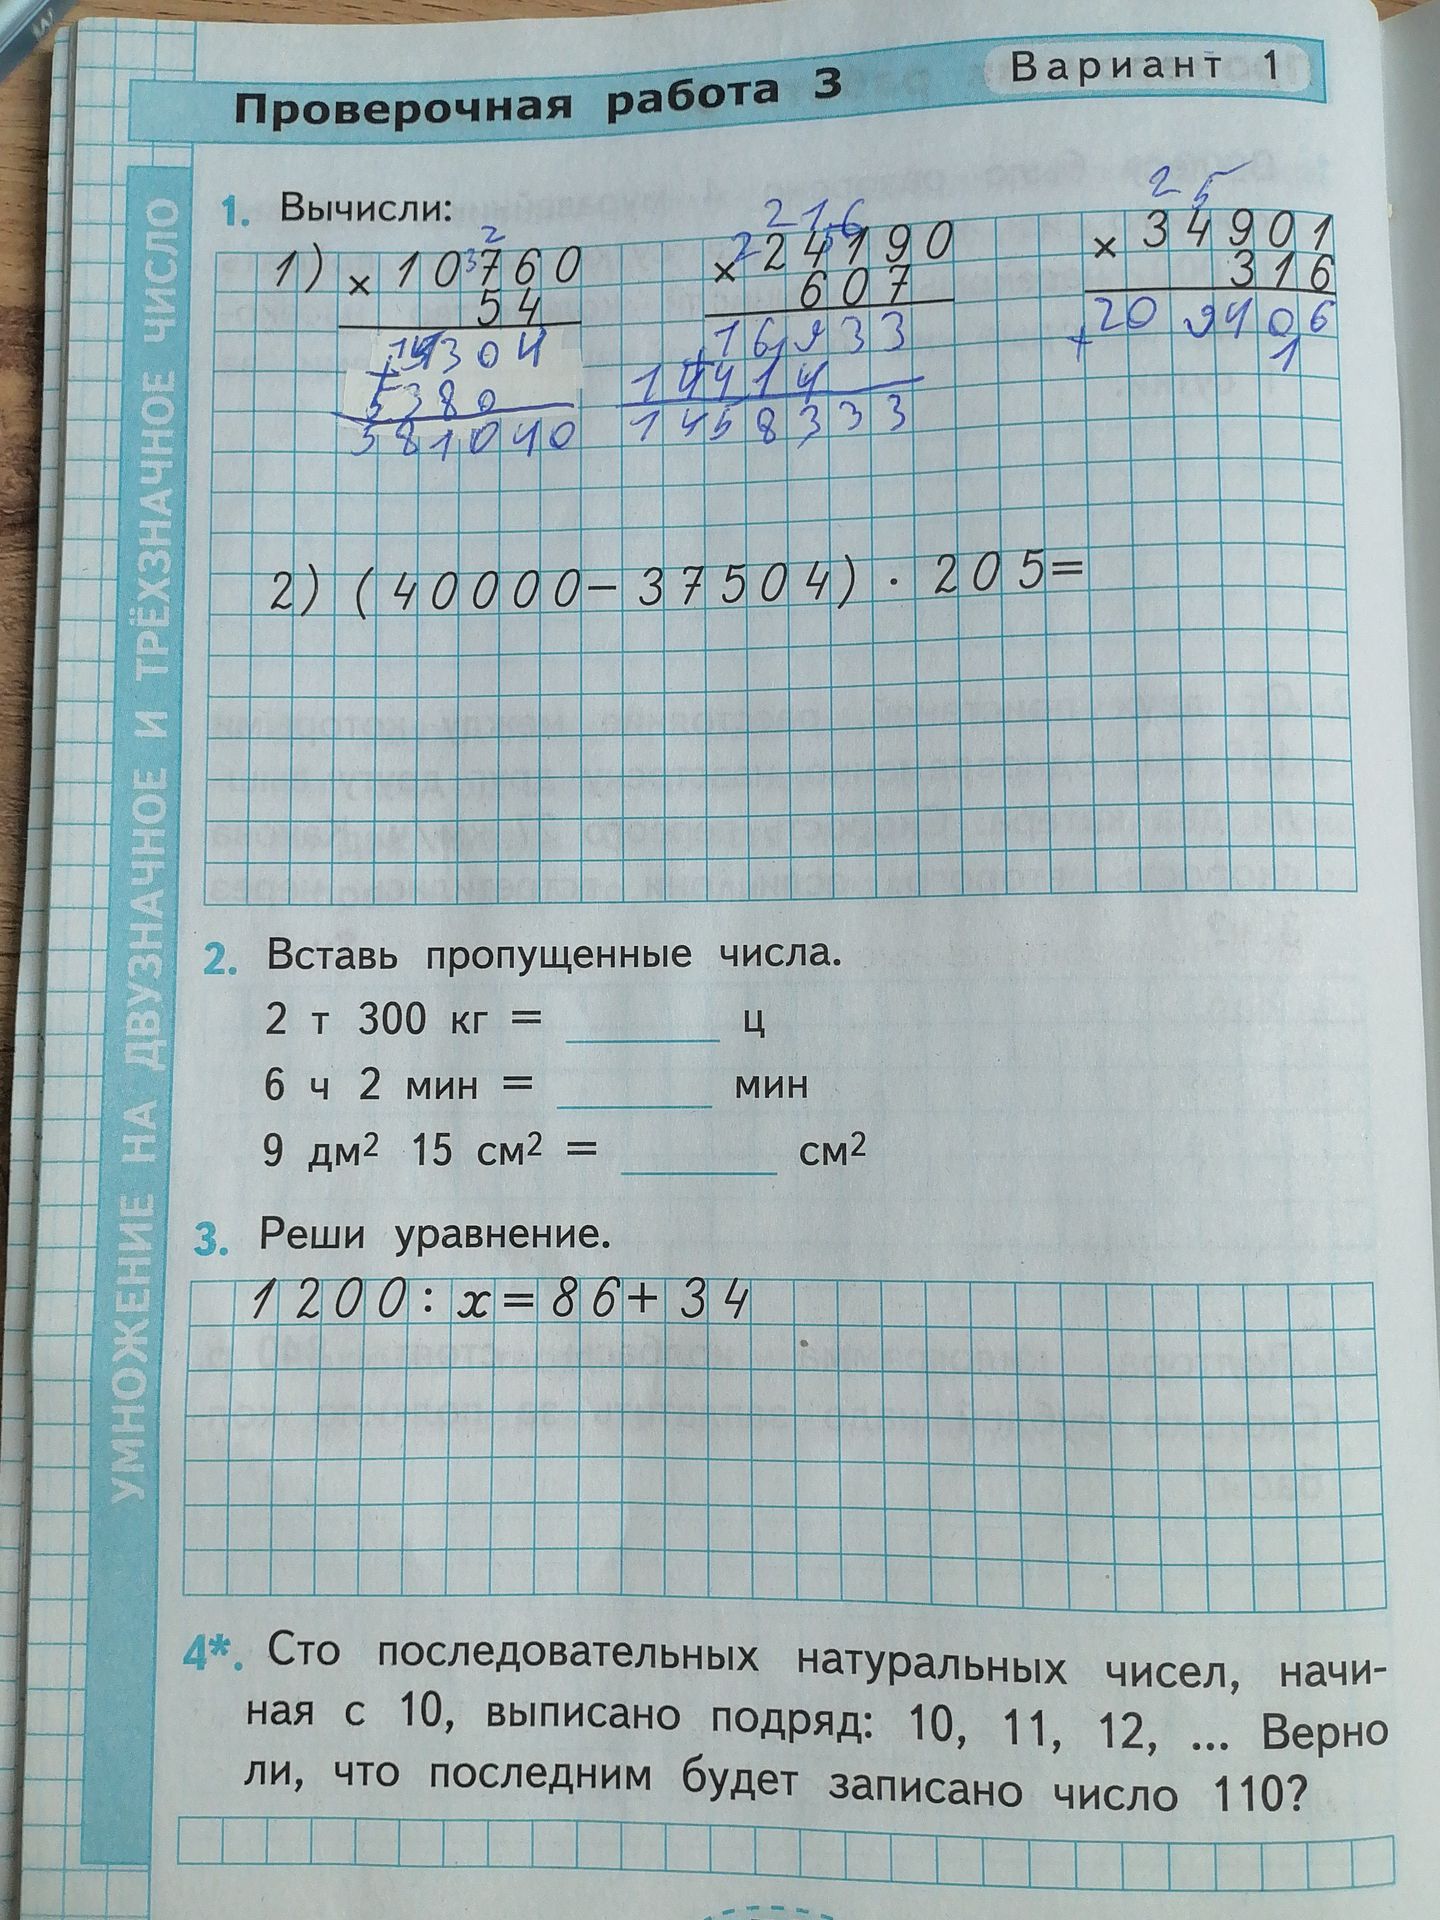 Проверочная работа 3
Вариант 1
УМНОЖЕНИЕ НА ДВУЗНАЧНОЕ И ТРЁХЗНАЧНОЕ ЧИСЛО
1. Вычисли:
1) × 10760
54
5380
581040
× 24190
607
16933
14414
1458333
× 34901
316
20 9406
1
2) (40000-37504) · 205=
2. Вставь пропущенные числа.
2 т 300 кг = ______ ц
6 ч 2 мин = ______ мин
9 дм² 15 см² = ______ см²
3. Реши уравнение.
1200 : x = 86 + 34
4*. Сто последовательных натуральных чисел, начи-
ная с 10, выписано подряд: 10, 11, 12, ... Верно
ли, что последним будет записано число 110?